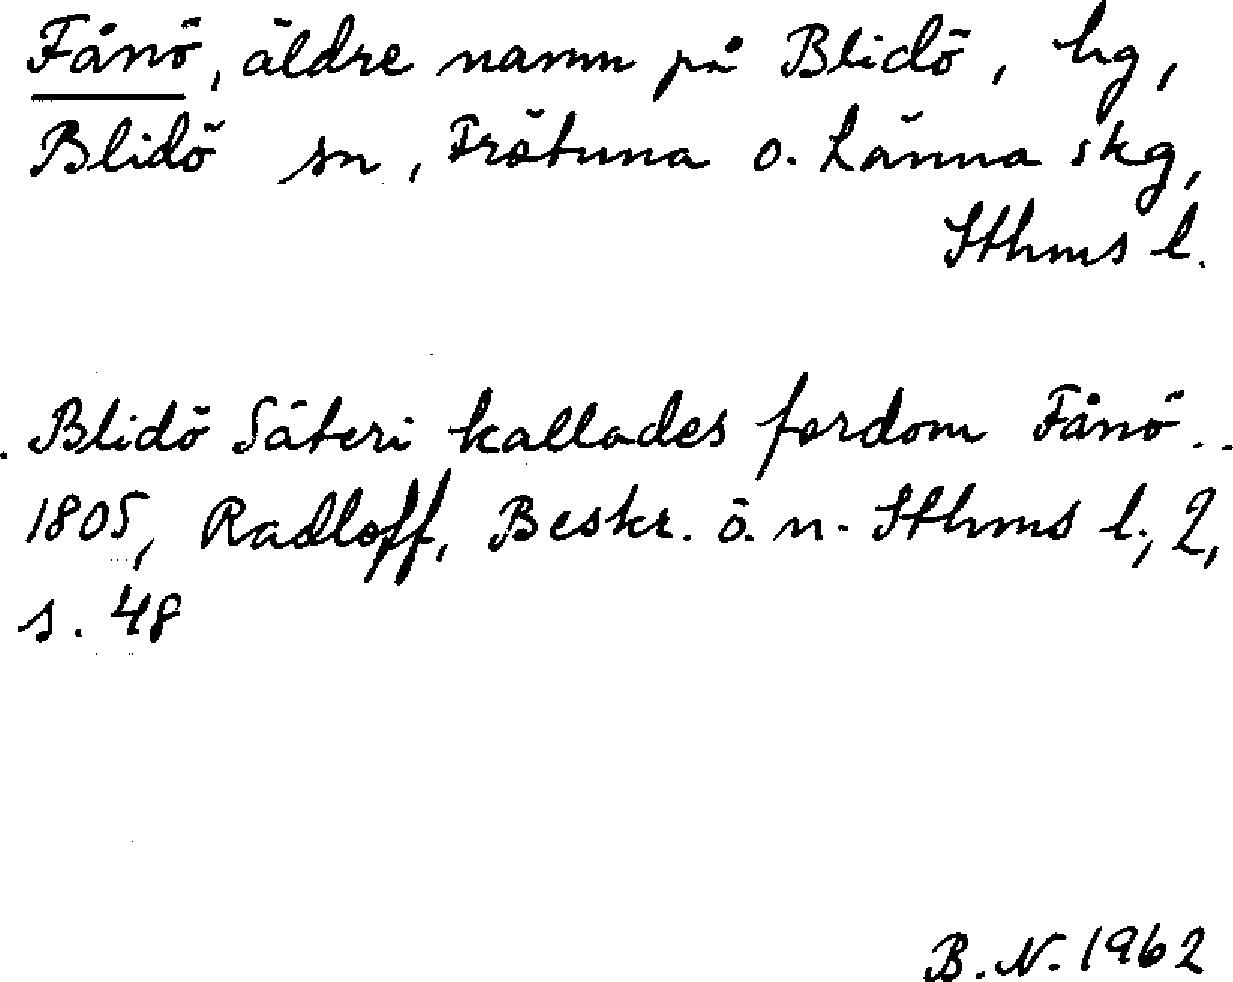 Fånö, äldre namn på Blidö, hg,
Blidö sn, Frötuna o. Länna skg,
Sthms l.
. Blidö Säteri kallades fordom Fånö ..
1805, Radloff, Beskr. ö. n. Sthms l., 2,
s. 48
B.N. 1962